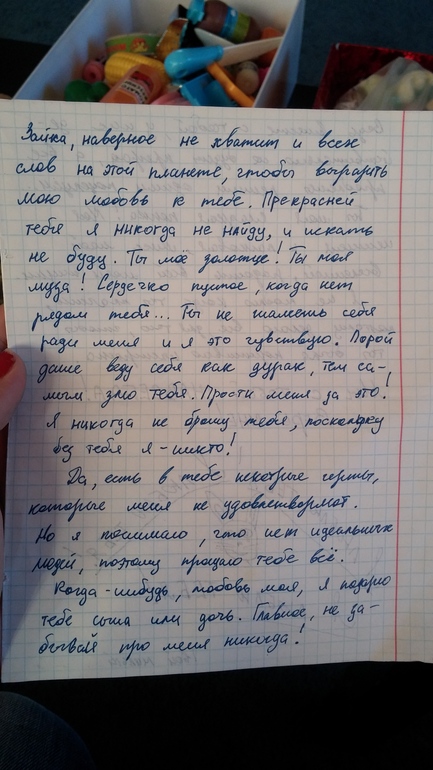 Зайка, наверное не хватит и всех
слов на этой планете, чтобы выразить
мою любовь к тебе. Прекрасней
тебя я никогда не найду, и искать
не буду. Ты моё золотце! Ты моя
муза! Сердечко пустое, когда нет
рядом тебя... Ты не жалеешь себя
ради меня и я это чувствую. Порой
даже веду себя как дурак, тем са-
мым злю тебя. Прости меня за это!
Я никогда не брошу тебя, поскольку
без тебя я - никто!
Да, есть в тебе некотрые черты,
которые меня не удовлетворяют.
Но я понимаю, что нет идеальных
людей, поэтому прощаю тебе всё.
Когда-нибудь, любовь моя, я подарю
тебе сына или дочь. Главное, не за-
бывай про меня никогда!